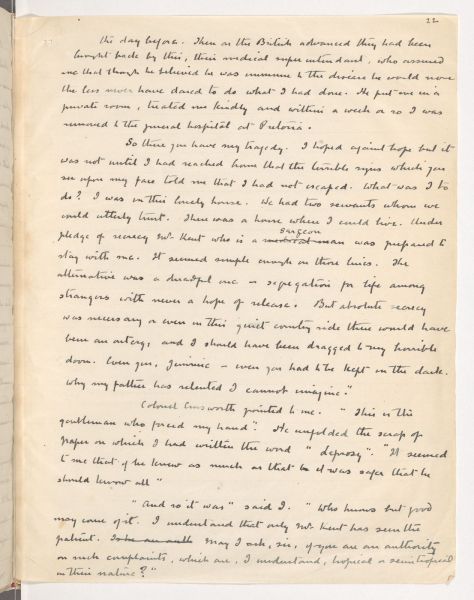 22
the day before. Then as the British advanced they had been
brought back by this, their medical superintendent, who assured
me that though he believed he was immune to the disease he would none
the less never have dared to do what I had done. He put me in a
private room, treated me kindly and within a week or so I was
removed to the general hospital at Pretoria.
So there you have my tragedy. I hoped against hope but it
was not until I had reached home that the terrible signs which you
see upon my face told me that I had not escaped. What was I to
do? I was in this lonely house. We had two servants whom we
could utterly trust. There was a house where I could live. Under
surgeon
pledge of secrecy Mr. Kent who is a medical man was prepared to
stay with me. It seemed simple enough on those lines. The
alternative was a dreadful one – segregation for life among
strangers with never a hope of release. But absolute secrecy
was necessary or even in this quiet country side there would have
been an outcry, and I should have been dragged to my horrible
doom. Even you, Jimmie – even you had to be kept in the dark.
Why my father has relented I cannot imagine."
Colonel Emsworth pointed to me. "This is the
gentleman who forced my hand". He unfolded the scrap of
paper on which I had written the word "Leprosy". "It seemed
to me that if he knew as much as that it was safer that he
should know all"
"And so it was" said I. "Who knows but good
may come of it. I understand that only Mr. Kent has seen the
patient. May I ask, sir, if you are an authority
on such complaints, which are, I understand, tropical or semitropical
in their nature?"